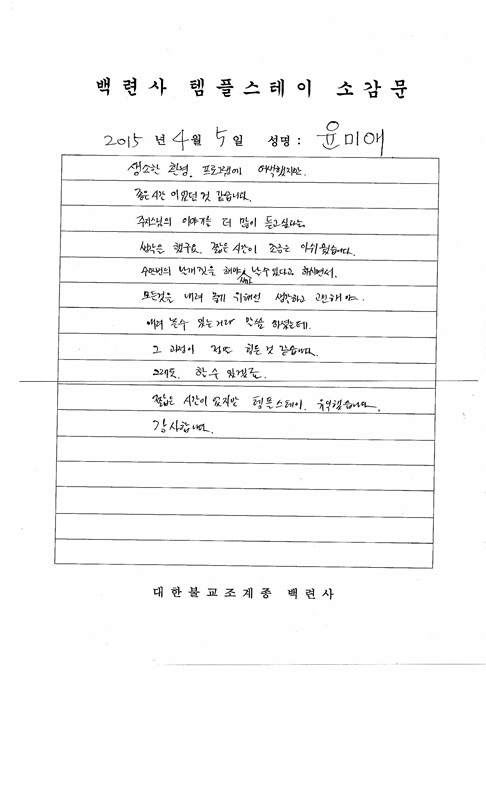 백련사 템플스테이 소감문
2015 년 4 월 5 일 성명 : 윤미애
생소한 환경. 프로그램에 어색했지만.
좋은시간 이었던것 같습니다.
주지스님의 이야기를 더 많이 듣고싶다는,
생각은 했구요. 짧은 시간이 조금은 아쉬웠습니다.
수만번의 날개짓을 해야 새가 난수있다고 하시면서.
모든것을 내려 놓기 위해선 생각하고 고민해야.
내려 놓수 있는거라 말씀 하셨는데.
그 과정이 정말 힘든것 같습니다.
그래도. 할수 있겠죠.
짧은 시간이 였지만 템플스테이. 유익했습니다.
감사합니다.
대한불교조계종 백련사